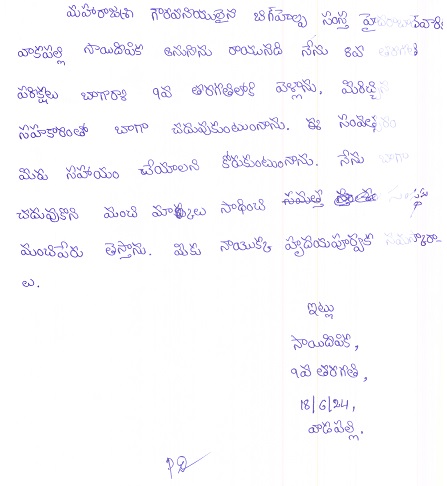 మహారాజశ్రీ గౌరవనియులైన బిగ్‌హెల్ప సంస్త హైదరాబాద్‌వారికి
వాడపల్లి సాయిదిపిక అనునాను రాయునది నేను 8వ తరగతి
పరిక్షలు బాగారాసి 9వ తరగతిలోకి వెళ్లాను. మిరిచ్చిన
సహకారంతో బాగా చదువుకుంటున్నాను. ఈ సంవత్సరం
మిరు సహాయం చేయాలని కోరుకుంటున్నాను. నేను బాగా
చదువుకొని మంచి మార్కులు సాధించి సంస్థకు
మంచిపేరు తెస్తాను. మికు నాయొక్క హృదయపూర్వక నమస్కారా
లు.
ఇట్లు
సాయిదిపిక,
9వ తరగతి,
18/6/24,
వాడపల్లి.